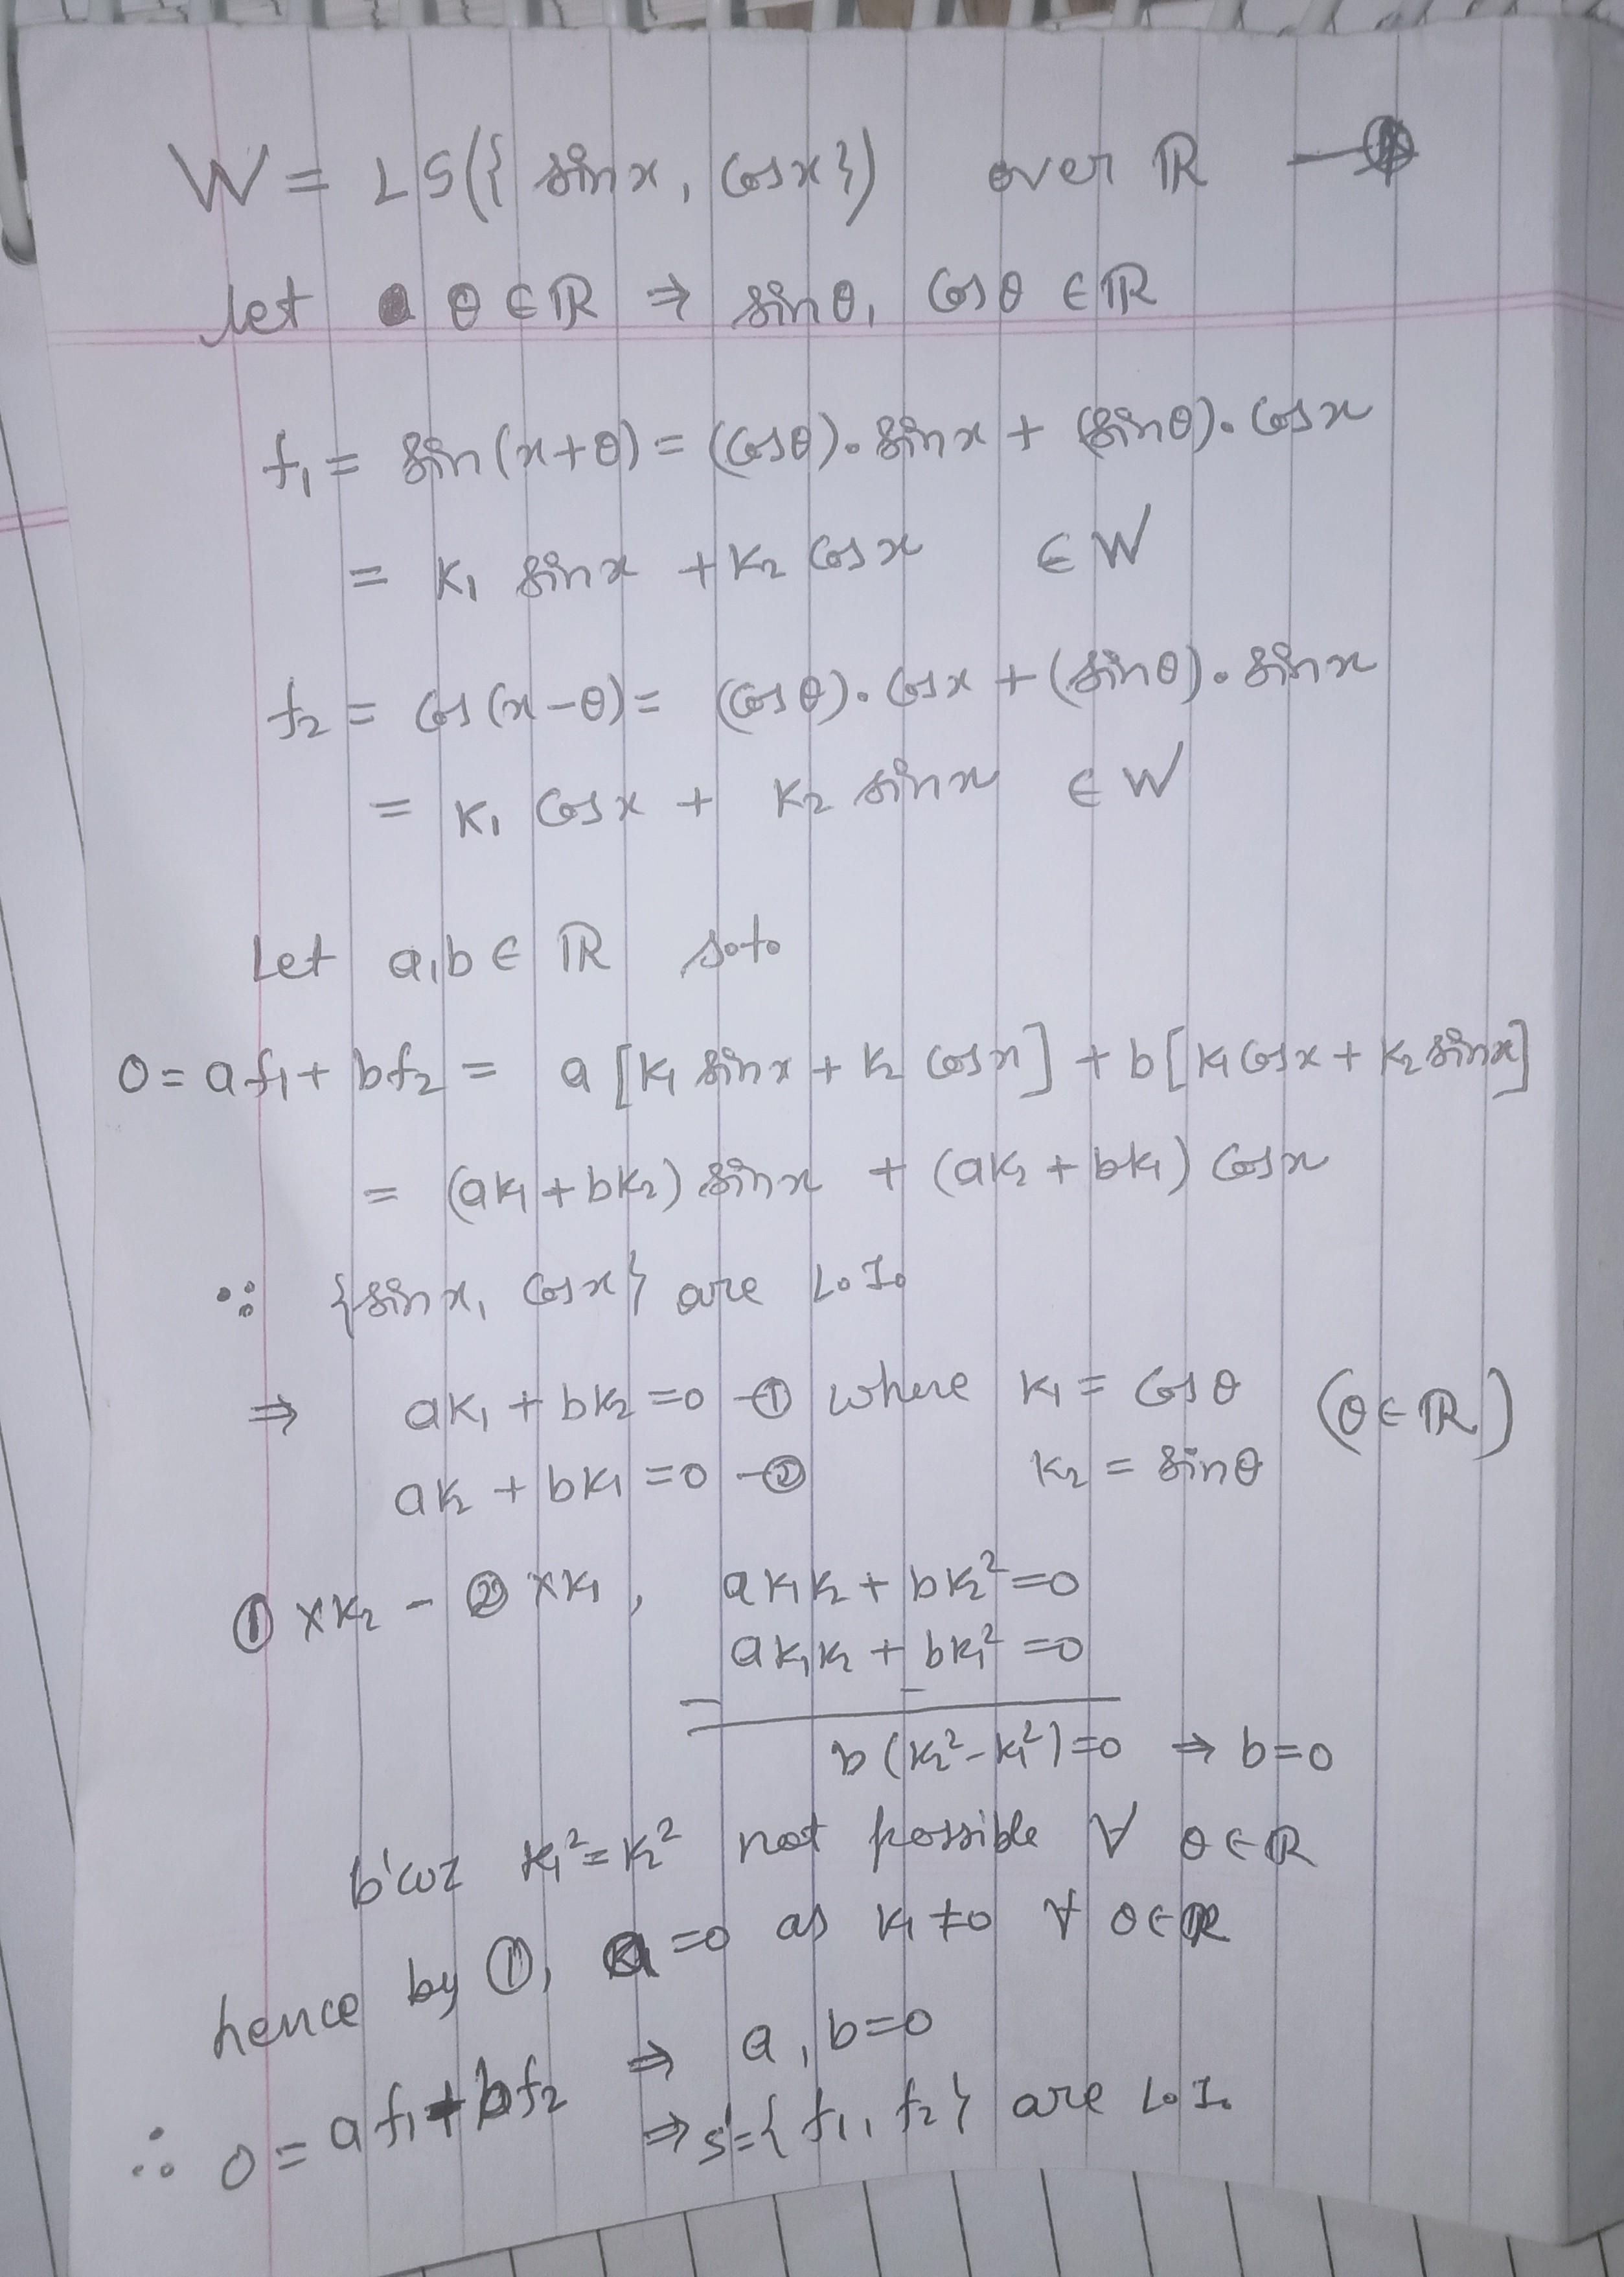 W = LS({ sinx, Cosx}) over ℝ
let θ ∈ ℝ ⇒ sinθ, Cosθ ∈ ℝ
f₁ = sin(x+θ) = (Cosθ). sinx + (sinθ). Cosx
= K₁ sinx + K₂ Cosx ∈ W
f₂ = Cos(x-θ) = (Cosθ). Cosx + (sinθ). sinx
= K₁ Cosx + K₂ sinx ∈ W
Let a,b ∈ ℝ s.t.
0 = af₁ + bf₂ = a [K₁ sinx + K₂ Cosx] + b [K₁ Cosx + K₂ sinx]
= (aK₁ + bK₂) sinx + (aK₂ + bK₁) Cosx
∵ {sinx, Cosx} are L.I.
⇒ aK₁ + bK₂ = 0 -① where K₁ = Cosθ (θ ∈ ℝ)
aK₂ + bK₁ = 0 -② K₂ = sinθ
① xK₂ - ② xK₁, aK₁K₂ + bK₂² = 0
aK₁K₂ + bK₁² = 0
- -
b (K₂² - K₁²) = 0 ⇒ b = 0
b'coz K₁² = K₂² not possible ∀ θ ∈ ℝ
hence by ①, a = 0 as K₁ ≠ 0 ∀ θ ∈ ℝ
∴ 0 = af₁ + bf₂ ⇒ a, b = 0
⇒ S' = {f₁, f₂} are L.I.